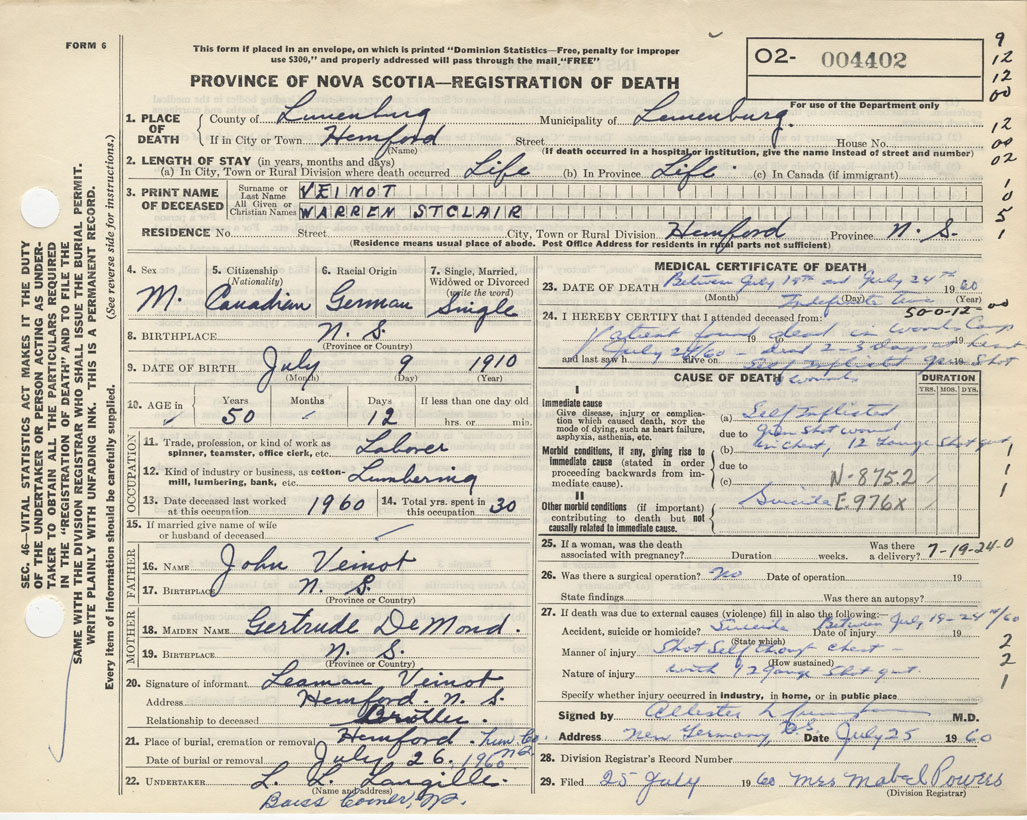 FORM 6
This form if placed in an envelope, on which is printed "Dominion Statistics—Free, penalty for improper
use $300," and properly addressed will pass through the mail "FREE"
PROVINCE OF NOVA SCOTIA—REGISTRATION OF DEATH
O2- 004402
For use of the Department only
9
12
12
00
12
00
02
1
0
5
1
SEC. 46—VITAL STATISTICS ACT MAKES IT THE DUTY
OF THE UNDERTAKER OR PERSON ACTING AS UNDER-
TAKER TO OBTAIN ALL THE PARTICULARS REQUIRED
IN THE "REGISTRATION OF DEATH" AND TO FILE THE
SAME WITH THE DIVISION REGISTRAR WHO SHALL ISSUE THE BURIAL PERMIT.
WRITE PLAINLY WITH UNFADING INK. THIS IS A PERMANENT RECORD.
Every item of information should be carefully supplied. (See reverse side for instructions.)
1. PLACE OF DEATH County of Lunenburg Municipality of Lunenburg.
If in City or Town Hemford Street House No.
(Name) (If death occurred in a hospital or institution, give the name instead of street and number)
2. LENGTH OF STAY (in years, months and days)
(a) In City, Town or Rural Division where death occurred Life (b) In Province Life (c) In Canada (if immigrant)
3. PRINT NAME OF DECEASED Surname or Last Name VEINOT
All Given or Christian Names WARREN STCLAIR
RESIDENCE No. Street City, Town or Rural Division Hemford Province N. S.
(Residence means usual place of abode. Post Office Address for residents in rural parts not sufficient)
4. Sex M. 5. Citizenship (Nationality) Canadian 6. Racial Origin German 7. Single, Married, Widowed or Divorced (write the word) Single
8. BIRTHPLACE N. S.
(Province or Country)
9. DATE OF BIRTH July 9 1910
(Month) (Day) (Year)
10. AGE in Years 50 Months Days 12 If less than one day old hrs. or min.
OCCUPATION
11. Trade, profession, or kind of work as spinner, teamster, office clerk, etc. Laborer
12. Kind of industry or business, as cotton-mill, lumbering, bank, etc. Lumbering
13. Date deceased last worked at this occupation 1960 14. Total yrs. spent in this occupation 30
15. If married give name of wife or husband of deceased
FATHER
16. NAME John Veinot
17. BIRTHPLACE N. S.
(Province or Country)
MOTHER
18. MAIDEN NAME Gertrude DeMond.
19. BIRTHPLACE N. S.
(Province or Country)
20. Signature of informant Leaman Veinot
Address Hemford. N. S.
Relationship to deceased Brother.
21. Place of burial, cremation or removal Hemford. Lun. Co. N.S.
Date of burial or removal July 26. 1960
22. UNDERTAKER L. L. Langille.
(Name and address)
Barss Corner, N.S.
MEDICAL CERTIFICATE OF DEATH
23. DATE OF DEATH Between July 19th and July 24th 1960
(Month) (Day) (Year)
50-0-12 00
24. I HEREBY CERTIFY that I attended deceased from:
Patient found dead in woods Camp 19 to 19
July 24/60 - dead 2-3 days at least
and last saw h alive on Self inflicted gun shot 19
wound.
CAUSE OF DEATH
DURATION
YRS. MOS. DYS.
I
Immediate cause
Give disease, injury or complica-
tion which caused death, NOT the
mode of dying, such as heart failure,
asphyxia, asthenia, etc.
(a) Self Inflicted
due to Gun Shot wound
Morbid conditions, if any, giving rise to
immediate cause (stated in order
proceeding backwards from im-
mediate cause).
(b) in chest, 12 gauge shot gun
due to
(c) N-875.2
II
Other morbid conditions (if important)
contributing to death but not
causally related to immediate cause.
Suicide E-976X
1
1
1
25. If a woman, was the death associated with pregnancy? Duration weeks. Was there a delivery? 7-19-24-0
26. Was there a surgical operation? no Date of operation 19
State findings Was there an autopsy?
27. If death was due to external causes (violence) fill in also the following:—
Accident, suicide or homicide? Suicide Date of injury Between July 19-24th/60 19
(State which)
Manner of injury Shot Self through chest -
(How sustained)
Nature of injury with 12 gauge Shot gun.
2
2
1
Specify whether injury occurred in industry, in home, or in public place
Signed by M.D.
Address New Germany, N.S. Date July 25 1960
28. Division Registrar's Record Number
29. Filed 25 July 1960 Mrs Mabel Powers
(Division Registrar)